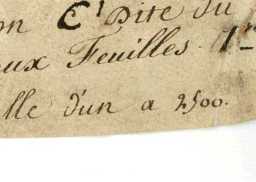 on C¹ Dite du
ux Feuilles. 1
lle d'un a 2500.